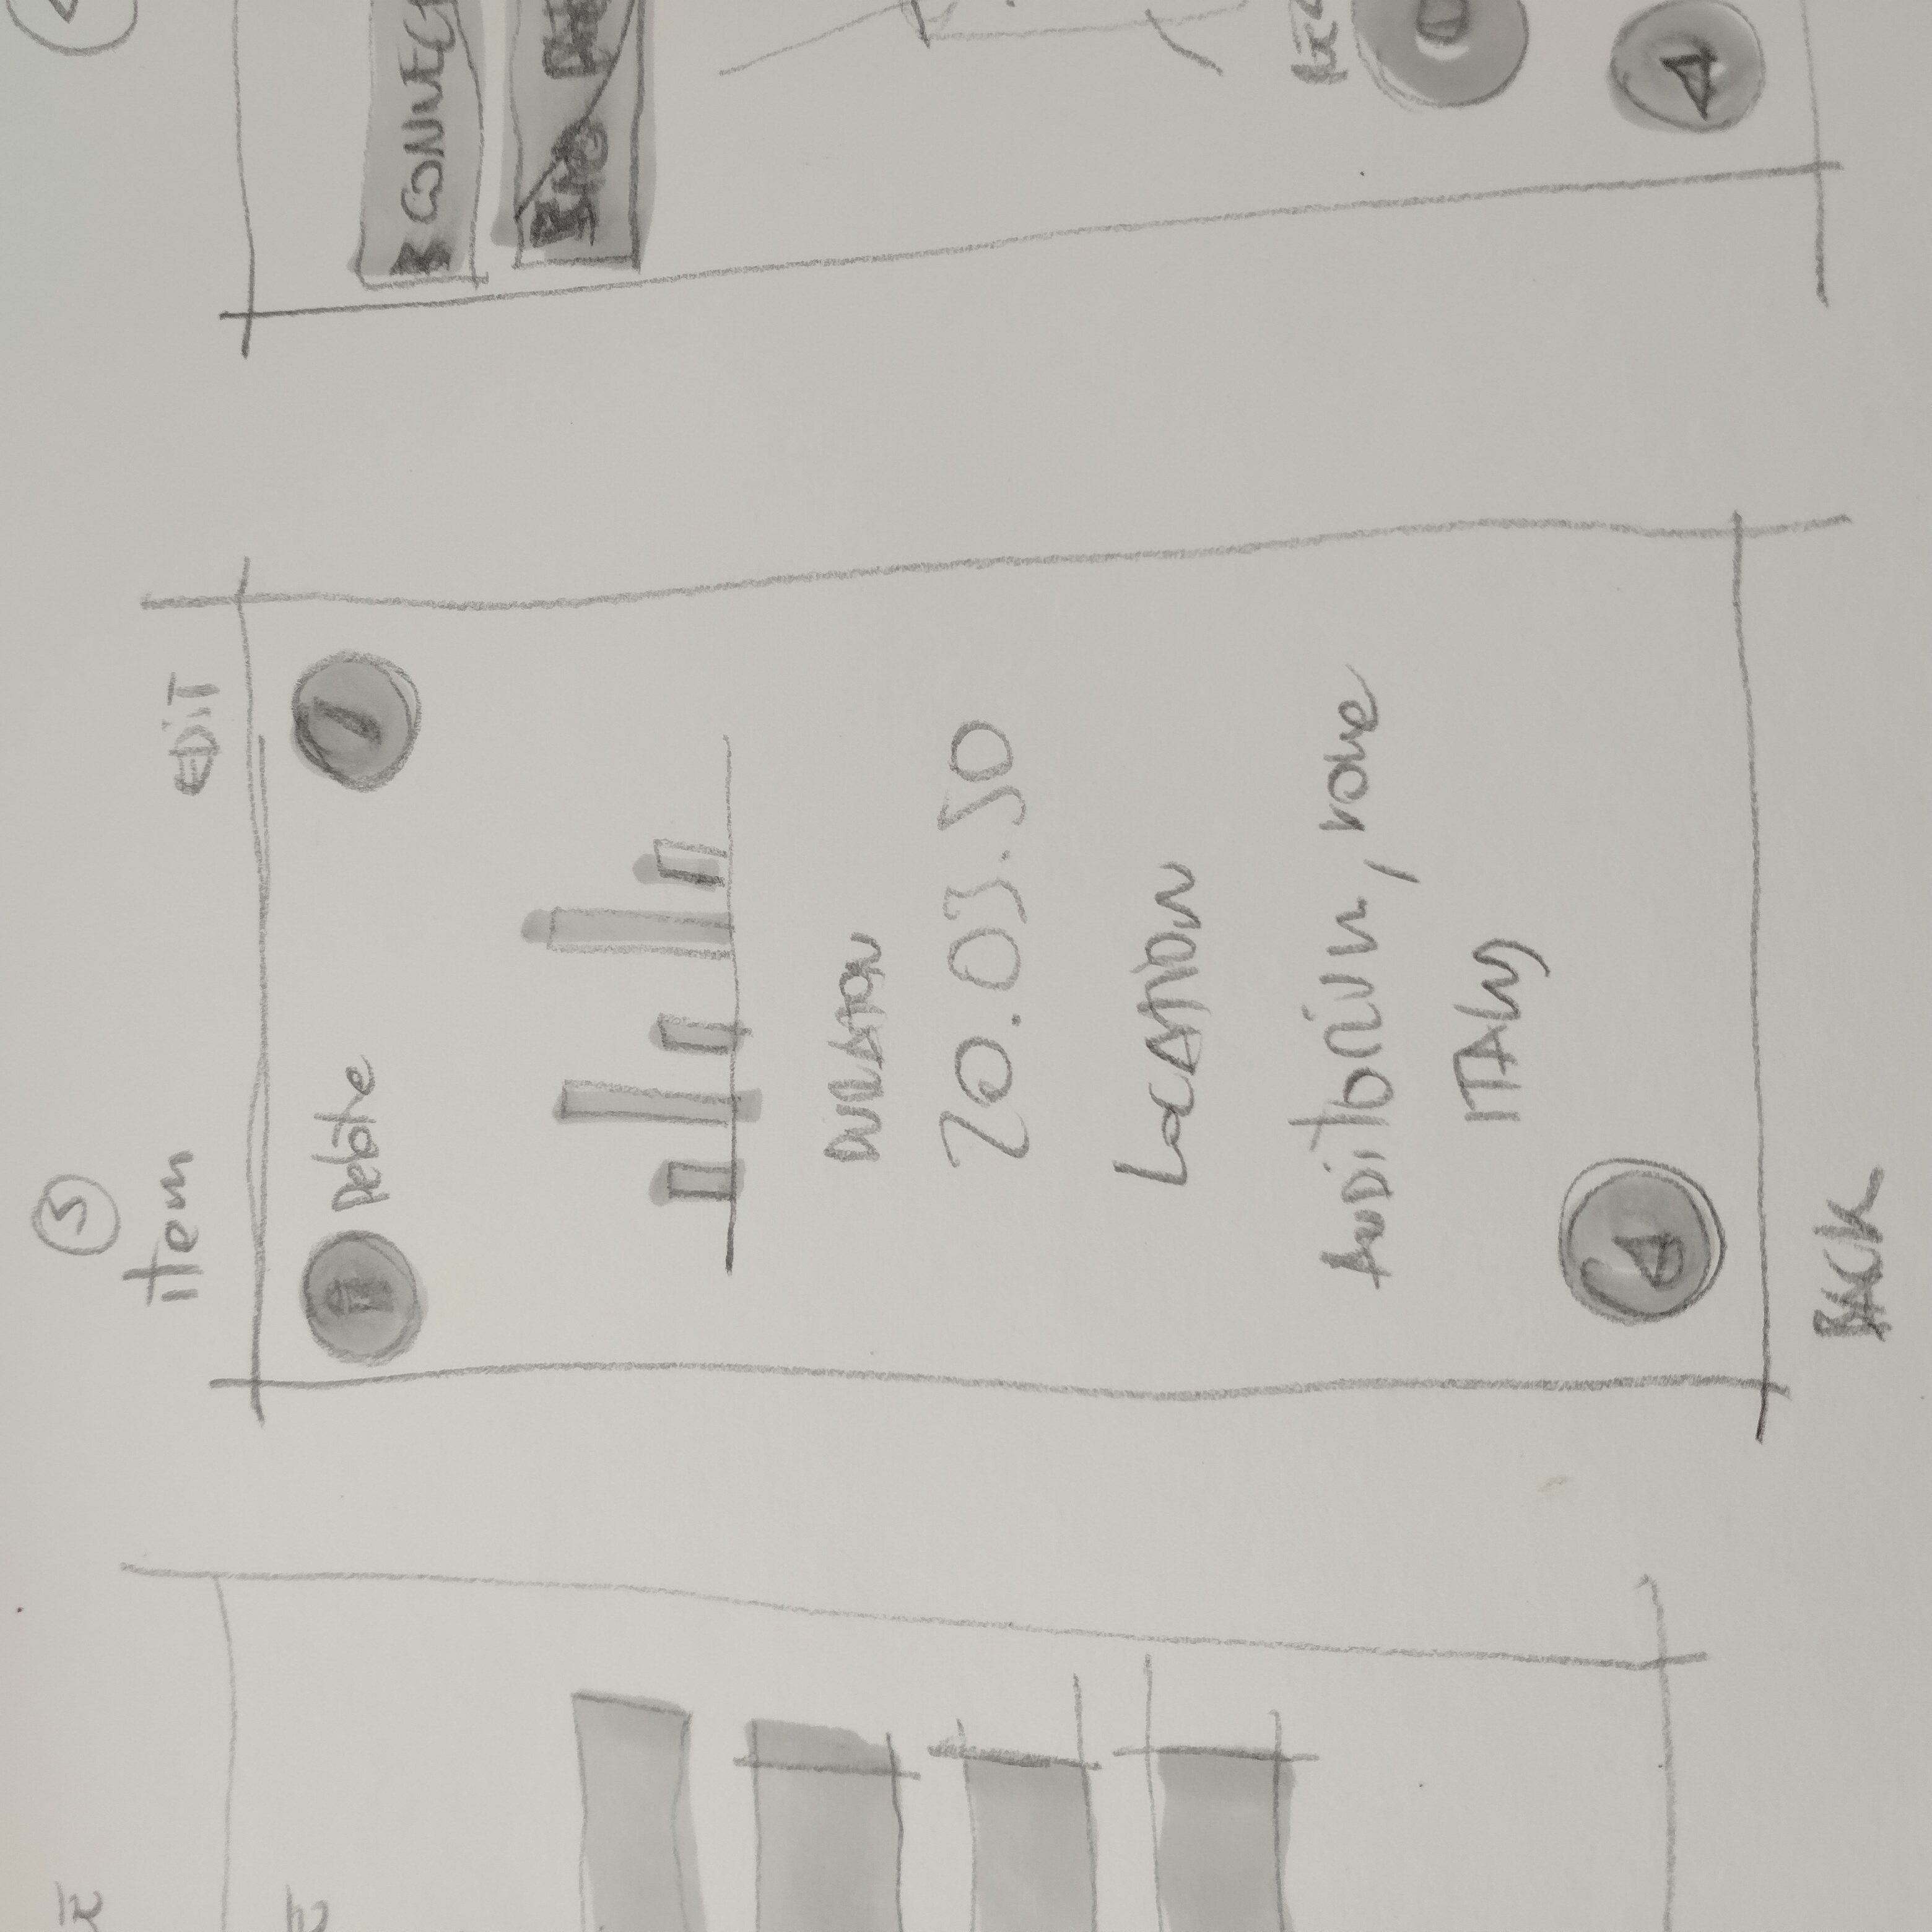 3
item
EDIT
Delete
DURATION
20.03.50
LOCATION
AUDITORIUM, rome
ITALY
BACK
CONNECT